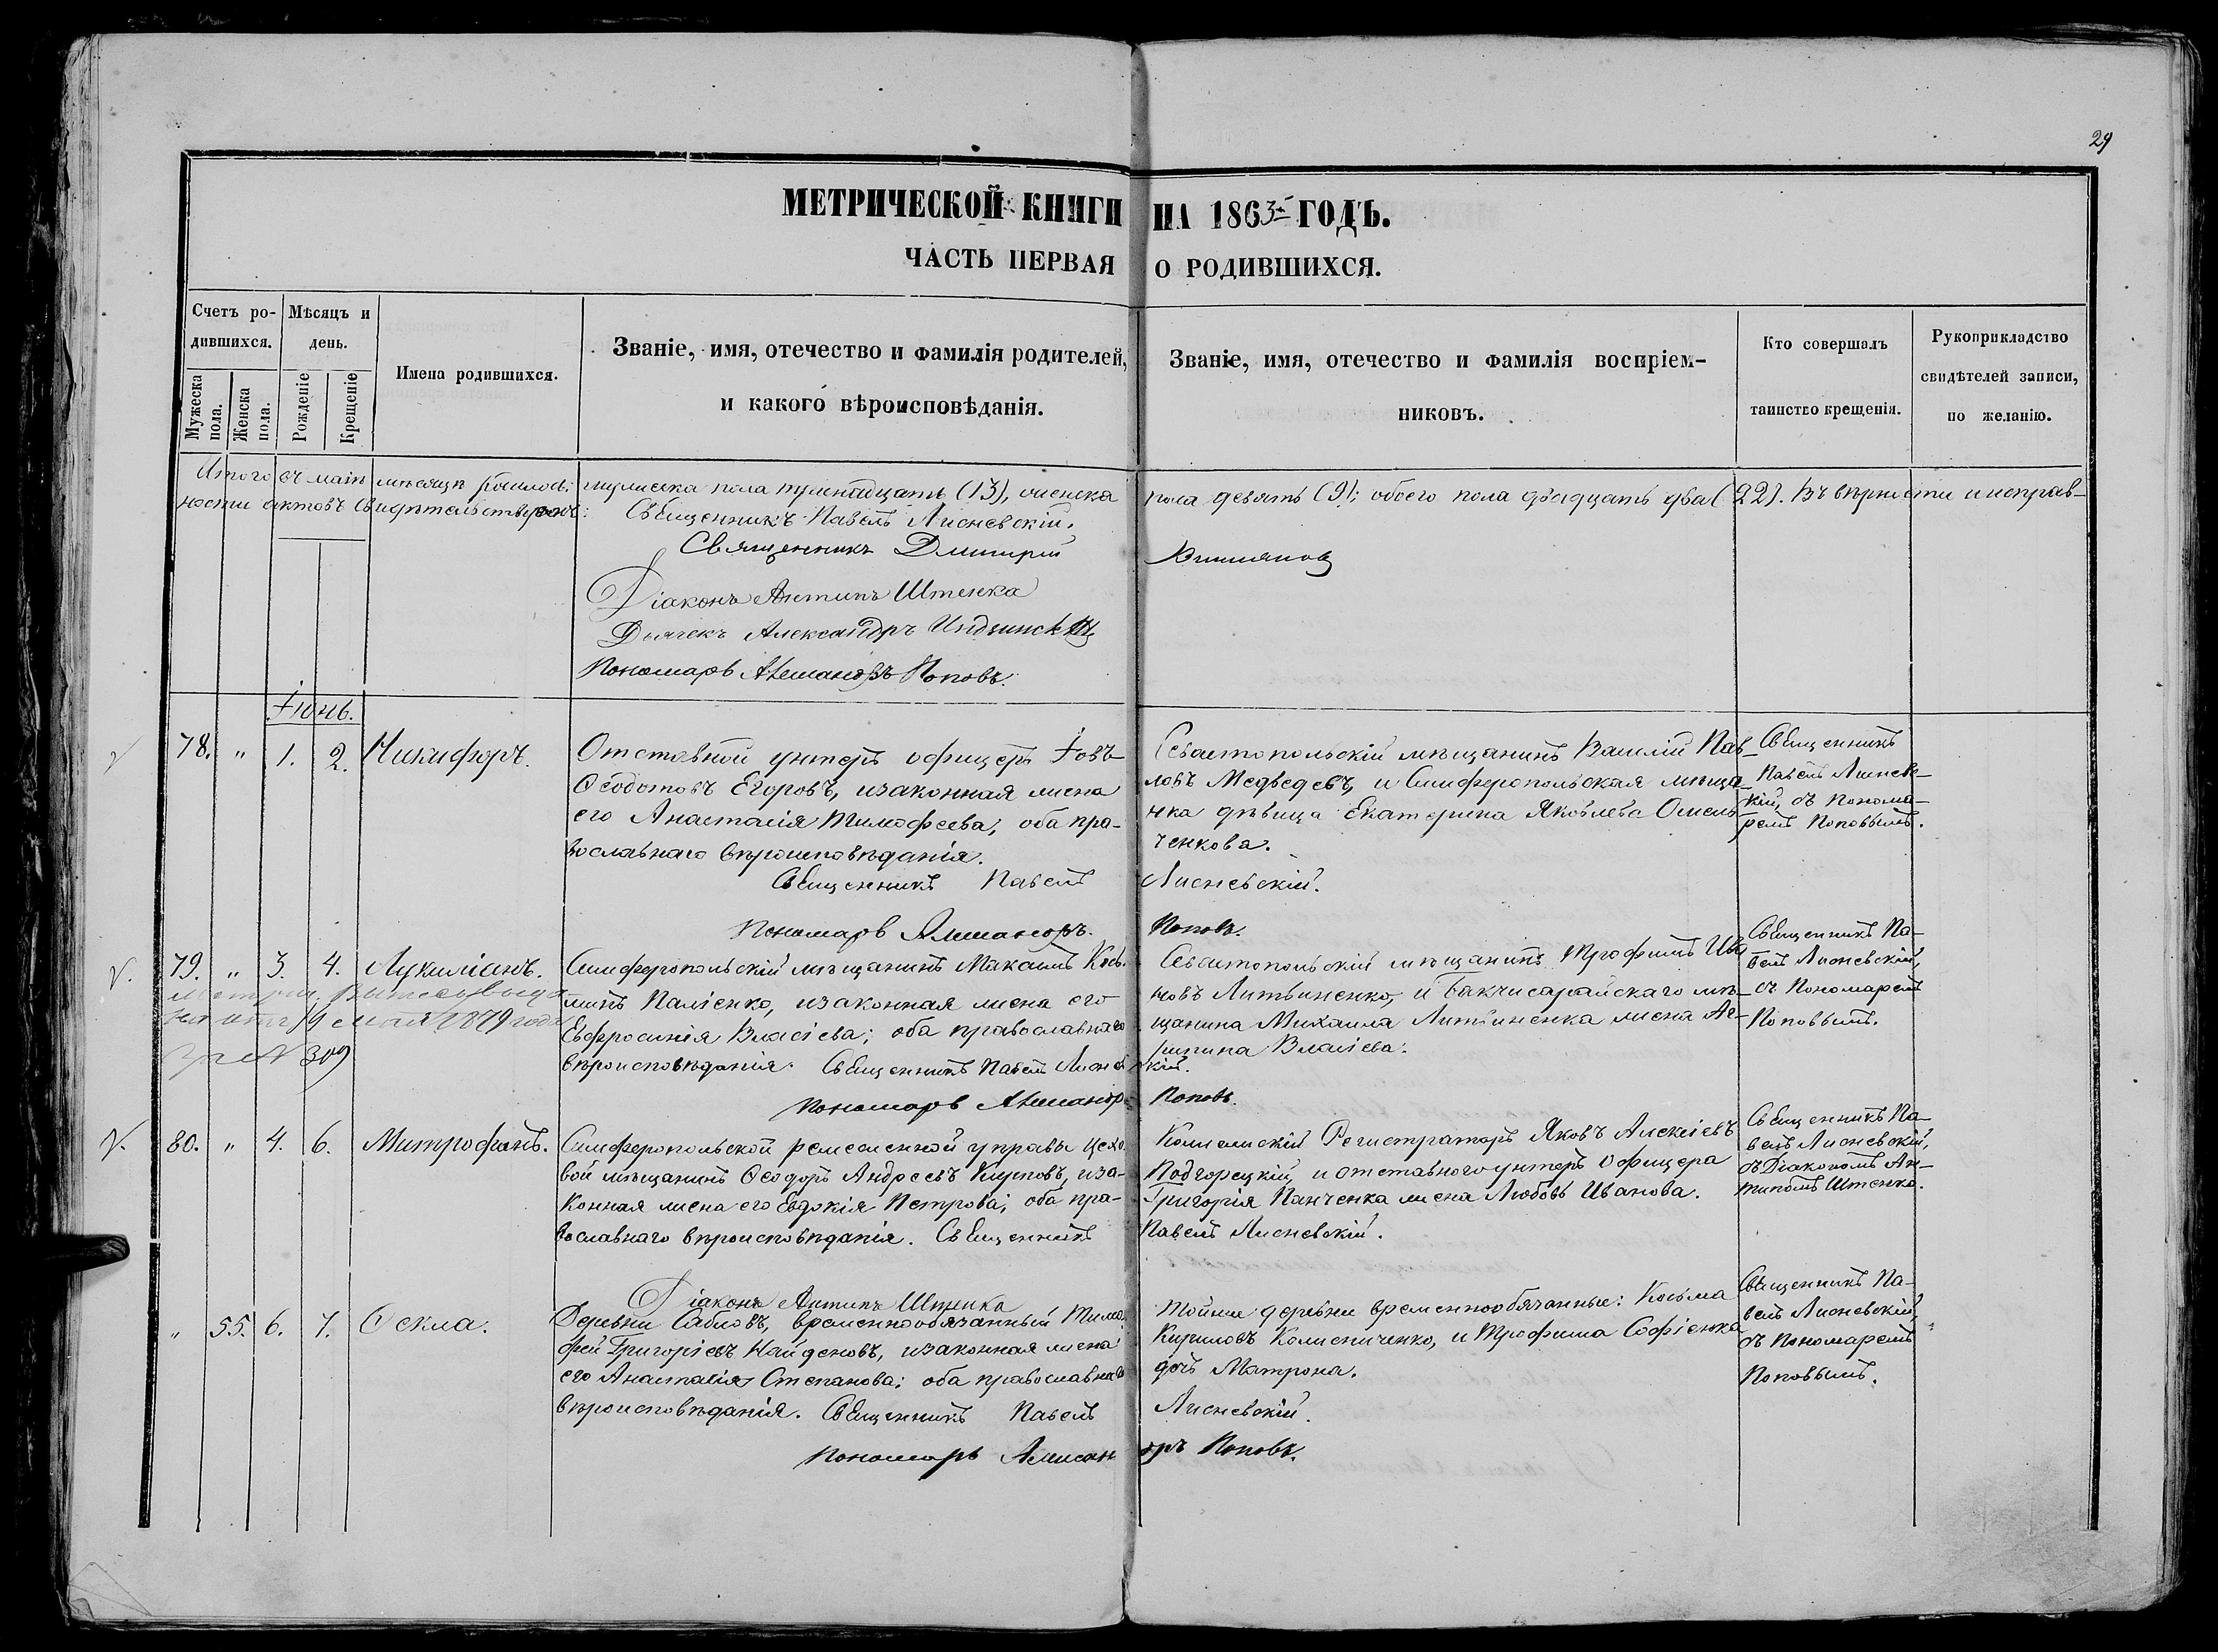 29
МЕТРИЧЕСКОЙ КНИГИ НА 1863й ГОДЪ.
ЧАСТЬ ПЕРВАЯ О РОДИВШИХСЯ.
Счетъ ро-
дившихся.
Мужеска пола.
Женска пола.
Мѣсяцъ и
день.
Рожденіе
Крещеніе
Имена родившихся.
Званіе, имя, отечество и фамилія родителей,
и какого вѣроисповѣданія.
Званіе, имя, отечество и фамилія воспріем-
никовъ.
Кто совершалъ
таинство крещенія.
Рукоприкладство
свидѣтелей записи,
по желанію.
Итого въ маѣ мѣсяцѣ родилось: мужеска пола тринадцать (13), женска пола девять (9); обоего пола двадцать два (22). Въ вѣрности и исправ-
ности актовъ свидѣтельствуемъ: Священникъ Павелъ Лисневскій.
Священникъ Дмитрій
Діаконъ Антипъ Штенка
Дьячекъ Александръ
Пономарь Александръ Поповъ.
Іюнь.
78. " 1. 2. Никифоръ.
Отставной унтеръ офицеръ Іовъ
Ѳеодотовъ Егоровъ, и законная жена
его Анастасія Тимофеева, оба пра-
вославнаго вѣроисповѣданія.
Священникъ Павелъ Лисневскій.
Пономарь Александръ Поповъ.
Севастопольскій мѣщанинъ Василій Пав-
ловъ Медведевъ, и Симферопольская мѣща-
нка дѣвица Екатерина Яковлева Омель-
ченкова.
Священникъ
Павелъ Лиснев-
кій, съ Понома-
ремъ Поповымъ.
79. " 3. 4. Лукиліанъ.
1879 года
за № 309
Симферопольскій мѣщанинъ Максимъ Кось-
минъ Паліенко, и законная жена его
Евфросинія Власіева; оба православнаго
вѣроисповѣданія. Священникъ Павелъ Лисневскій.
Пономарь Александръ Поповъ.
Севастопольскій мѣщанинъ Трофимъ Ива-
новъ Литвиненко, и Бахчисарайскаго мѣ-
щанина Михаила Литвиненка жена Аг-
рипина Власіева.
Священникъ Па-
велъ Лисневскій,
съ Пономаремъ
Поповымъ.
80. " 4. 6. Митрофанъ.
Симферопольской ремесленной управы цехо-
вой мѣщанинъ Ѳеодоръ Андреевъ Купновъ, и за-
конная жена его Евдокія Петрова; оба пра-
вославнаго вѣроисповѣданія. Священникъ Павелъ Лисневскій.
Діаконъ Антипъ Штенка
Колежскій Регистраторъ Яковъ Алексіевъ
Подгорецкій, и отставного унтеръ офицера
Григорія Панченка жена Любовь Иванова.
Священникъ Па-
велъ Лисневскій,
съ Діакономъ Ан-
типомъ Штенко.
" 55. 6. 7. Ѳекла.
Деревни Сабловъ, временнообязанный Тимо-
фей Григоріевъ Найденовъ, и законная жена
его Анастасія Степанова; оба православнаго
вѣроисповѣданія. Священникъ Павелъ Лисневскій.
Пономарь Александръ Поповъ.
Тойже деревни временнообязанные: Косьма
Кириловъ Колесниченко, и Трофима Софіенка
дочь Матрона.
Священникъ Па-
велъ Лисневскій,
съ Пономаремъ
Поповымъ.